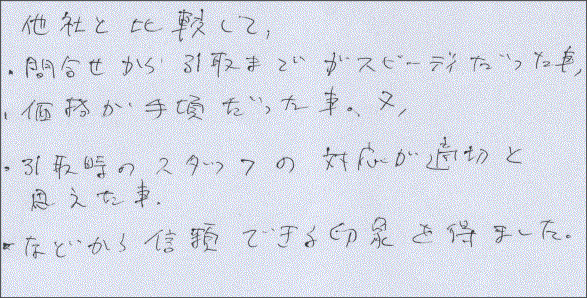 他社と比較して,
・問合せから引取までがスピーディだった事,
・価格が手頃だった事。又,
・引取時のスタッフの対応が適切と
思えた事.
・などから信頼できる印象を得ました。